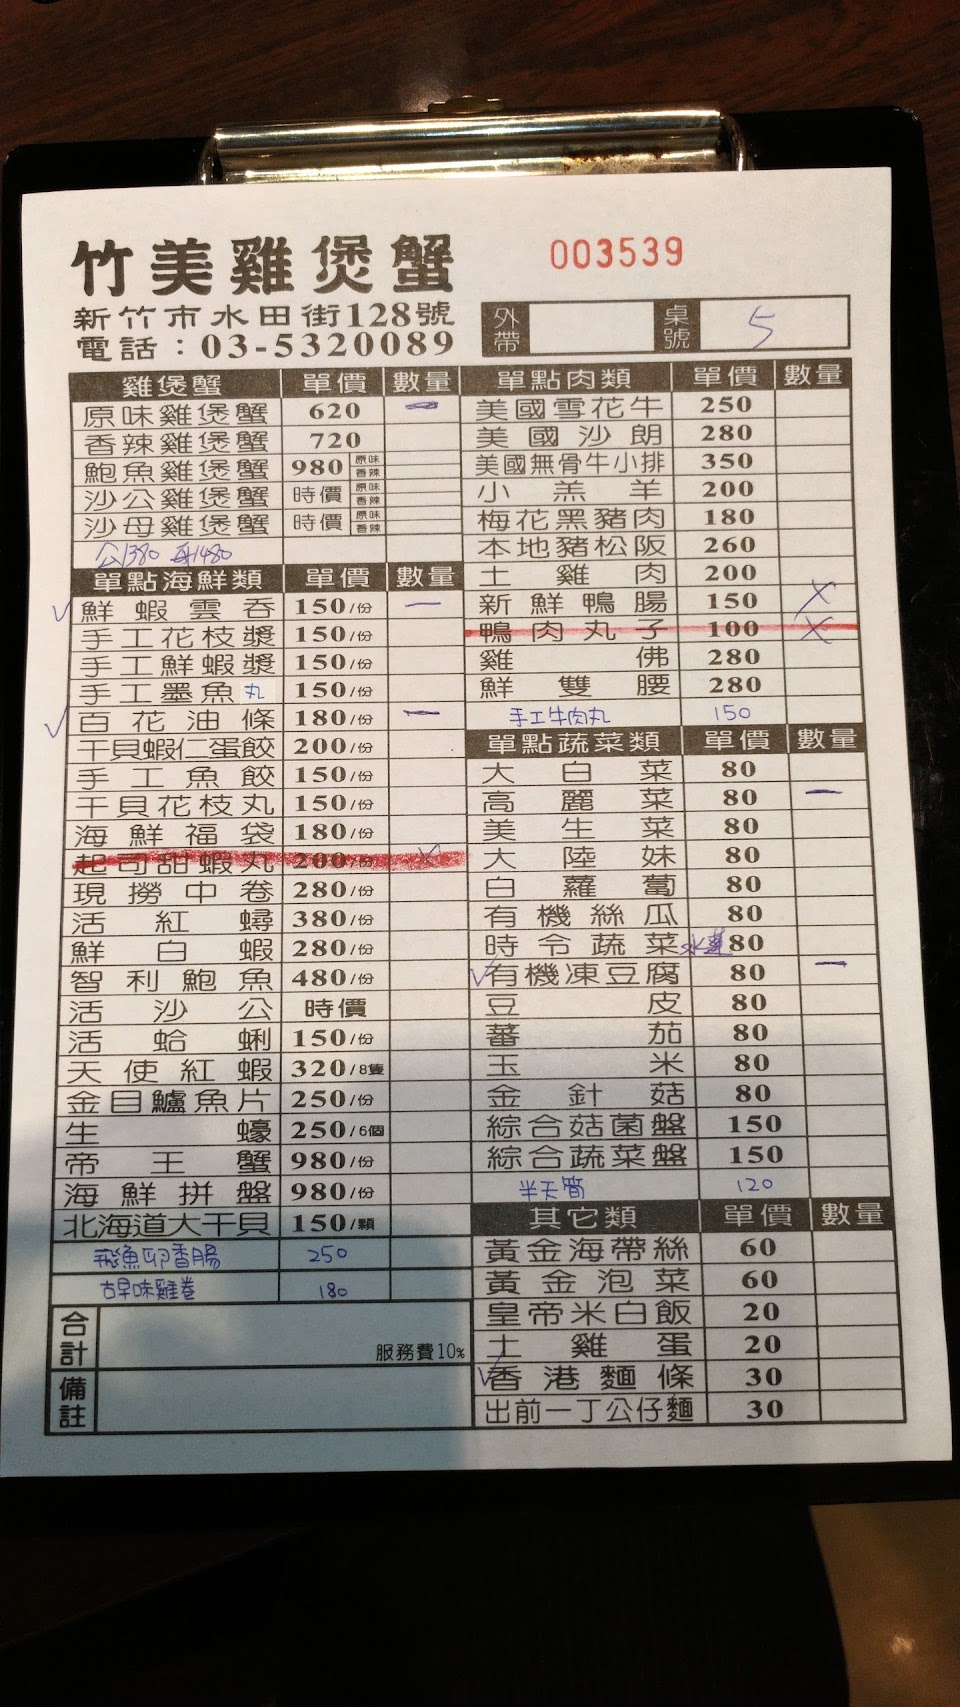 竹美雞煲蟹
003539
新竹市水田街128號
電話：03-5320089
外帶 桌號 5
雞煲蟹 單價 數量
原味雞煲蟹 620 一
香辣雞煲蟹 720
鮑魚雞煲蟹 980 原味 香辣
沙公雞煲蟹 時價 原味 香辣
沙母雞煲蟹 時價 原味 香辣
公1380 母1480
單點海鮮類 單價 數量
✓ 鮮蝦雲吞 150/份 一
手工花枝漿 150/份
手工鮮蝦漿 150/份
手工墨魚丸 150/份
✓ 百花油條 180/份 一
干貝蝦仁蛋餃 200/份
手工魚餃 150/份
干貝花枝丸 150/份
海鮮福袋 180/份
起司甜蝦丸 200/份 X
現撈中卷 280/份
活紅蟳 380/份
鮮白蝦 280/份
智利鮑魚 480/份
活沙公 時價
活蛤蜊 150/份
天使紅蝦 320/8隻
金目鱸魚片 250/份
生蠔 250/6個
帝王蟹 980/份
海鮮拼盤 980/份
北海道大干貝 150/顆
飛魚卵香腸 250
古早味雞卷 180
合計 服務費10%
備註
單點肉類 單價 數量
美國雪花牛 250
美國沙朗 280
美國無骨牛小排 350
小羔羊 200
梅花黑豬肉 180
本地豬松阪 260
土雞肉 200
新鮮鴨腸 150 X
鴨肉丸子 100 X
雞佛 280
鮮雙腰 280
手工牛肉丸 150
單點蔬菜類 單價 數量
大白菜 80
高麗菜 80 一
美生菜 80
大陸妹 80
白蘿蔔 80
有機絲瓜 80
時令蔬菜 水蓮 80
✓ 有機凍豆腐 80 一
豆皮 80
蕃茄 80
玉米 80
金針菇 80
綜合菇菌盤 150
綜合蔬菜盤 150
半天筍 120
其它類 單價 數量
黃金海帶絲 60
黃金泡菜 60
皇帝米白飯 20
土雞蛋 20
✓ 香港麵條 30
出前一丁公仔麵 30